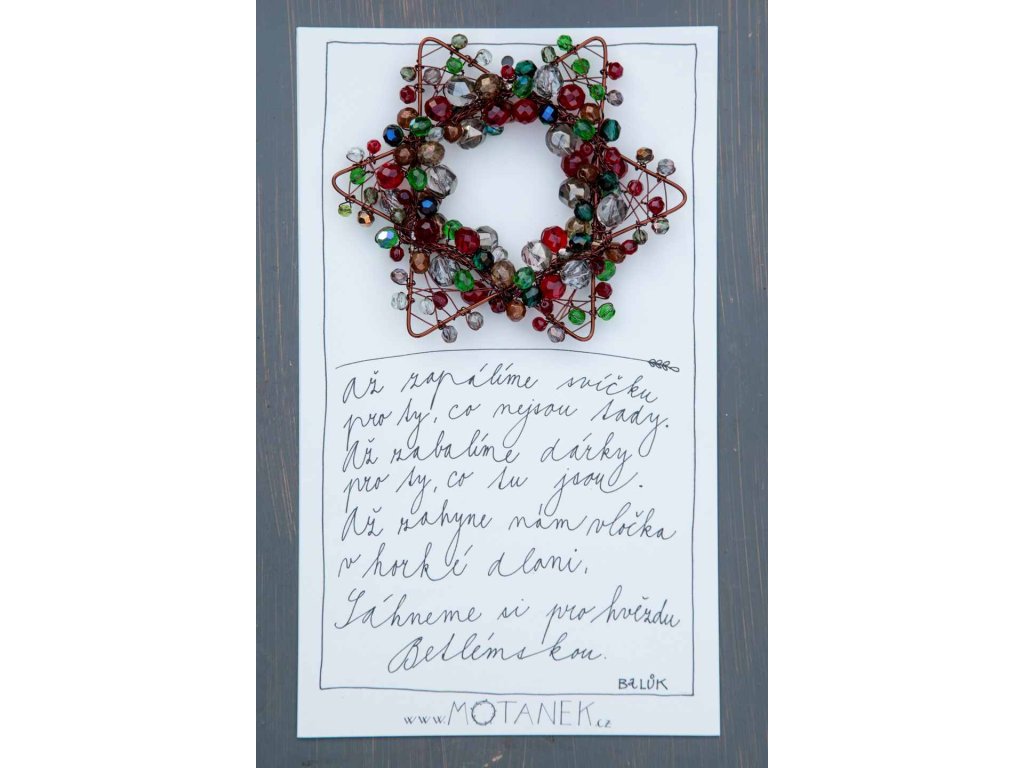 Až zapálíme svíčku
pro ty, co nejsou tady.
Až zabalíme dárky
pro ty, co tu jsou.
Až zahyne nám vločka
v horké dlani,
Sáhneme si pro hvězdu
Betlémskou.
BALŮK
www.MOTANEK.cz